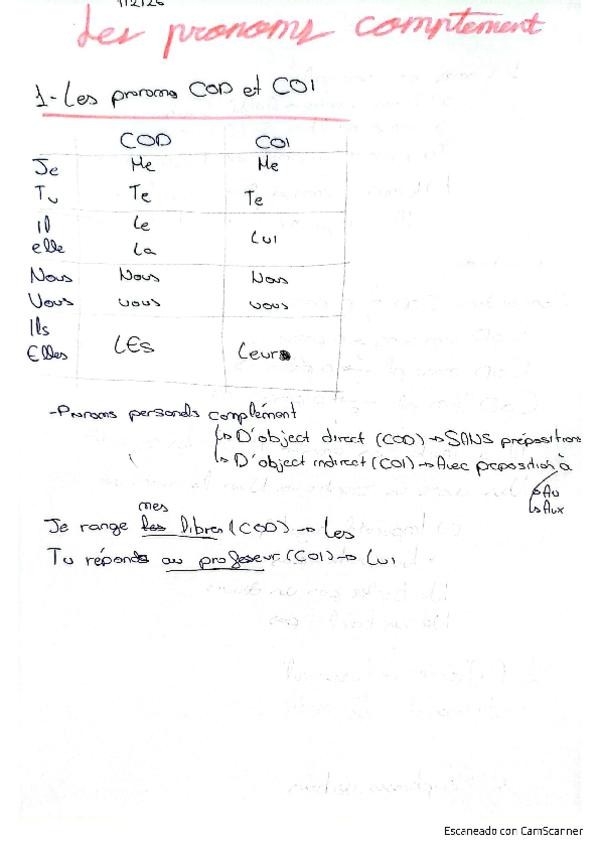 1/2/26
Les pronoms complement
1- Les pronoms COD et COI
COD COI
Je Me Me
Tu Te Te
Il Le
elle La Lui
Nous Nous Nous
Vous vous vous
Ils
Elles LEs Leur
-Pronoms personels complément
↳ D'object direct (COD) → SANS préposition
↳ D'object indirect (COI) → Avec preposition à
↳ Au
↳ Aux
mes
Je range les libres (COD) → Les
Tu réponds au profeseur (COI) → Lui
Escaneado con CamScanner